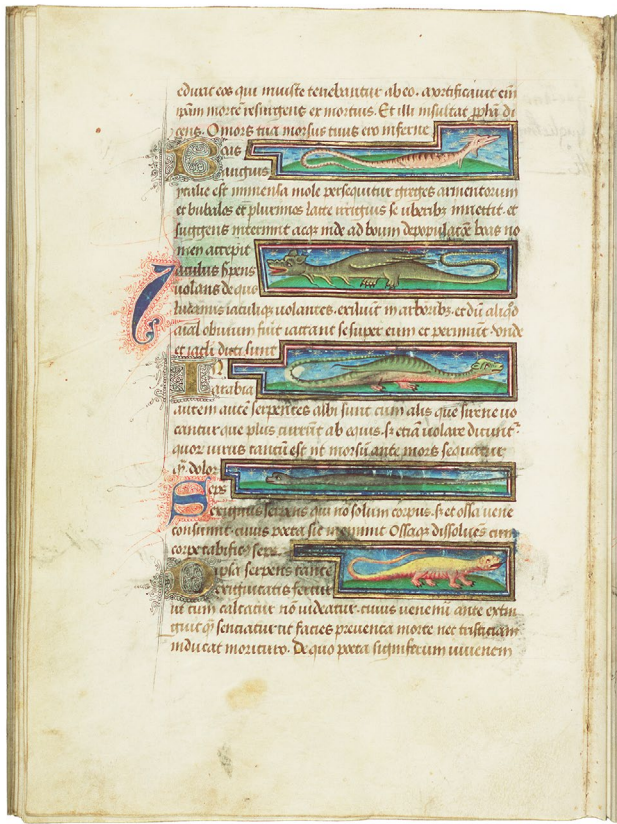 educat eos qui iuiuste tenebantur ab eo. mortificauit eni
ipam morte resurgens ex mortuis. Et illi insultat ppha di
cens. O mors tua morsus tuus ero inferne
Boas
anguis
ytalie est inmensa mole persequitur greges armentorum
et bubalos et plurimos lacte irriguis se uberibus innectit. et
suggens interimit atque inde ad boum depopulacoem boas no
men accepit
Iaculus sipens
uolans de quo
lucanus iaculique uolantes. exiliunt in arboribus. et dum aliqd
aial obuium fuit iactant se super eum et perimunt. vnde
et iaculi dicti sunt
In
arabia
autem autem serpentes albi sunt cum alis que sirene uo
cantur que plus currunt ab equis. sed etiam uolare dicuntur
quorum uirus tantum est ut morsum ante mors sequatur
quam dolor
Seps
exiguus serpens qui non solum corpus. sed et ossa uene
consumit. cuius poeta sic meminit Ossaque dissoluens cum
corpe tabificus seps
Dipsa serpens tante
exiguitatis fertur
ut cum calcatur non uideatur. cuius uenenum ante extin
guit quam senciatur ut facies preuenta morte nec tristiciam
inducat morituro. De quo poeta signiferum iuuenem